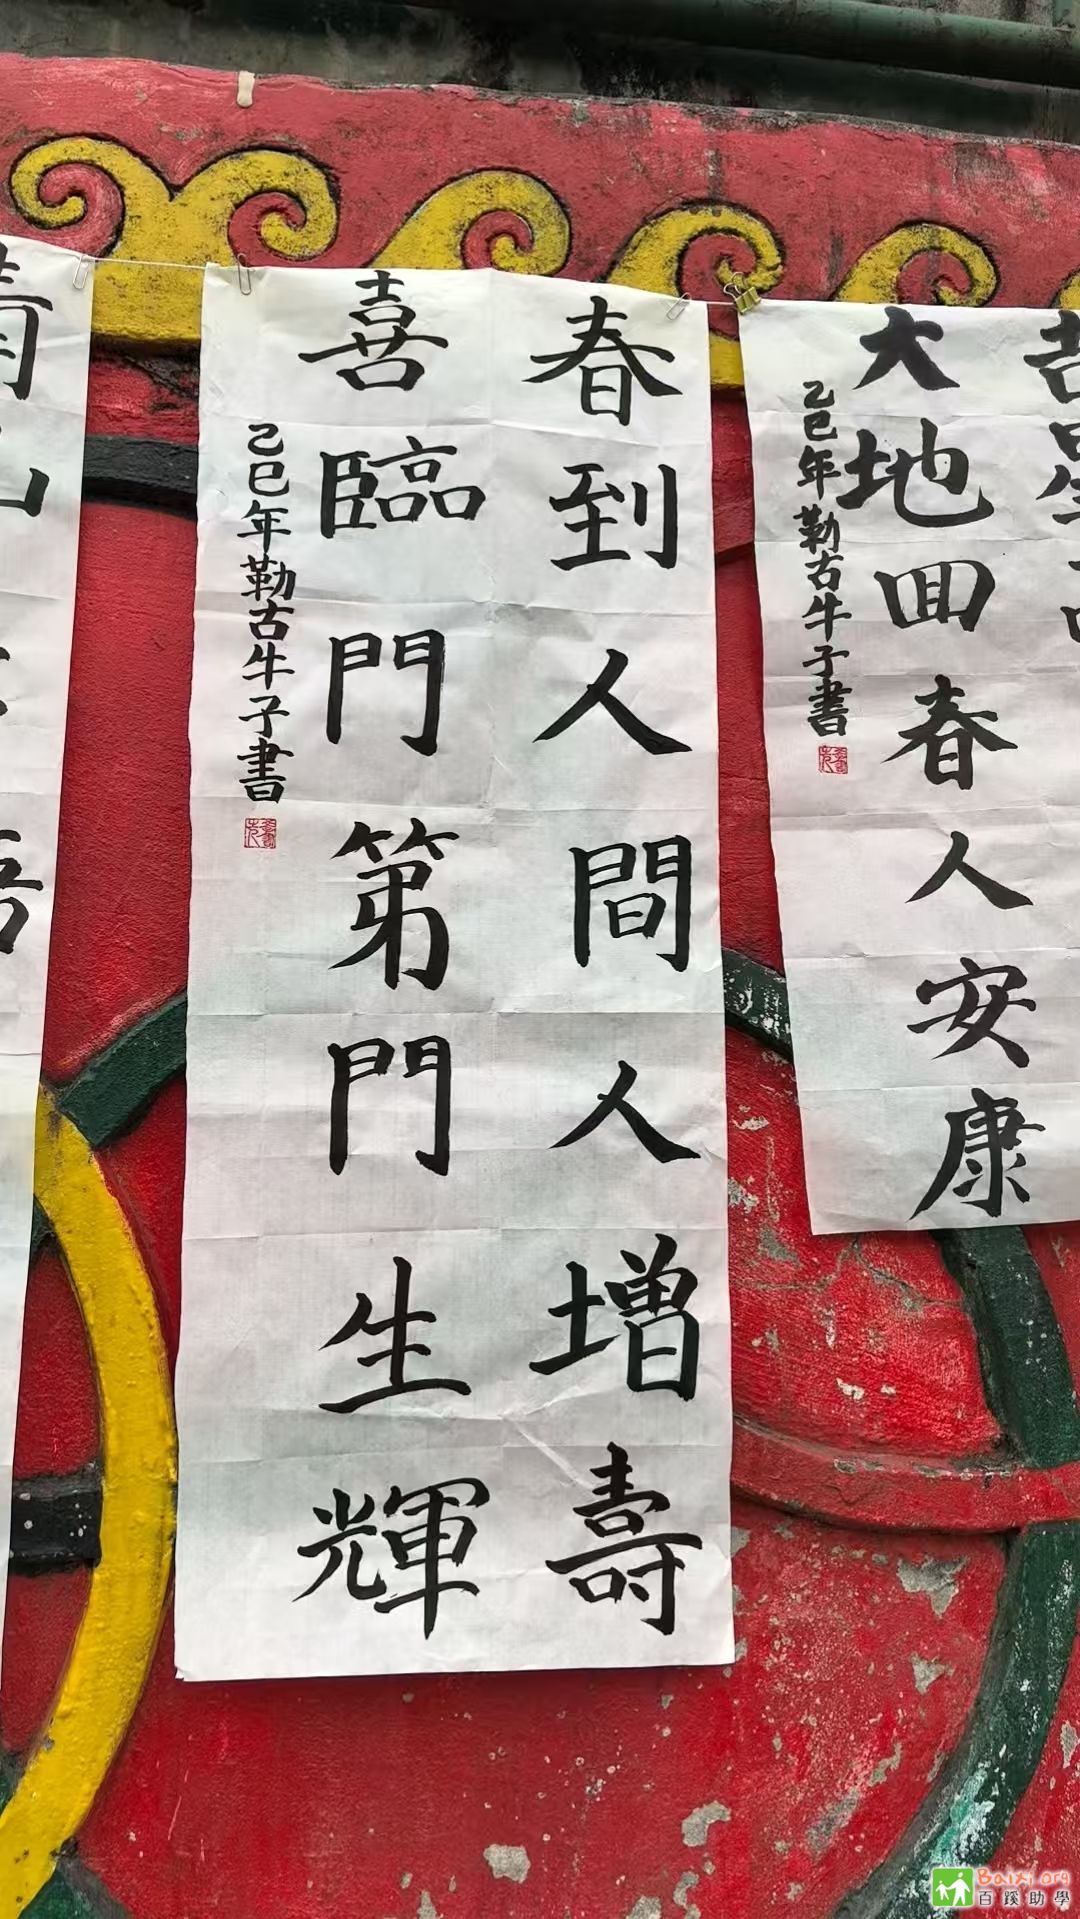 吉星
大地回春人安康
乙巳年勒古牛子書
春到人間人增壽
喜臨門第門生輝
乙巳年勒古牛子書
Baixi.org
百蹊助學